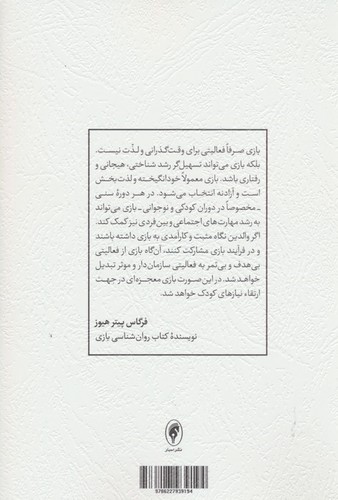 بازی صرفاً فعالیتی برای وقت‌گذرانی و لذّت نیست.
بلکه بازی می‌تواند تسهیل‌گر رشد شناختی، هیجانی و
رفتاری باشد. بازی معمولاً خودانگیخته و لذت‌بخش
است و آزادنه انتخاب می‌شود. در هر دورهٔ سنی
ـ مخصوصاً در دوران کودکی و نوجوانی ـ بازی می‌تواند
به رشد مهارت‌های اجتماعی و بین‌فردی نیز کمک کند.
اگر والدین نگاه مثبت و کارآمدی به بازی داشته باشند
و در فرآیند بازی مشارکت کنند، آن‌گاه بازی از فعالیتی
بی‌هدف و بی‌ثمر به فعالیتی سازمان‌دار و موثر تبدیل
خواهد شد. در این صورت بازی معجزه‌ای در جهت
ارتقاء نیازهای کودک خواهد شد.
فرگاس پیتر هیوز
نویسندهٔ کتاب روان‌شناسی بازی
نشر اسبار
9786227939194